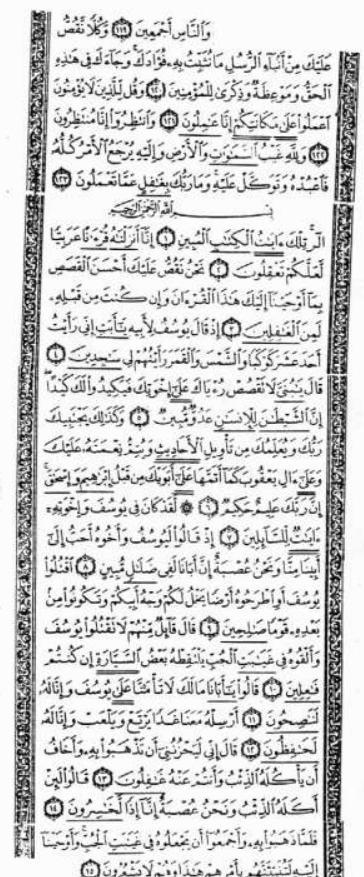 وَالنَّاسِ أَجْمَعِينَ ١١٩ وَكُلًّا نَّقُصُّ
عَلَيْكَ مِنْ أَنۢبَآءِ ٱلرُّسُلِ مَا نُثَبِّتُ بِهِۦ فُؤَادَكَ وَجَآءَكَ فِى هَٰذِهِ
ٱلْحَقُّ وَمَوْعِظَةٌ وَذِكْرَىٰ لِلْمُؤْمِنِينَ ١٢٠ وَقُل لِّلَّذِينَ لَا يُؤْمِنُونَ
ٱعْمَلُوا۟ عَلَىٰ مَكَانَتِكُمْ إِنَّا عَٰمِلُونَ ١٢١ وَٱنتَظِرُوٓا۟ إِنَّا مُنتَظِرُونَ
١٢٢ وَلِلَّهِ غَيْبُ ٱلسَّمَٰوَٰتِ وَٱلْأَرْضِ وَإِلَيْهِ يُرْجَعُ ٱلْأَمْرُ كُلُّهُۥ
فَٱعْبُدْهُ وَتَوَكَّلْ عَلَيْهِ وَمَا رَبُّكَ بِغَٰفِلٍ عَمَّا تَعْمَلُونَ ١٢٣
بِسْمِ ٱللَّهِ ٱلرَّحْمَٰنِ ٱلرَّحِيمِ
الٓر تِلْكَ ءَايَٰتُ ٱلْكِتَٰبِ ٱلْمُبِينِ ١ إِنَّآ أَنزَلْنَٰهُ قُرْءَٰنًا عَرَبِيًّا
لَّعَلَّكُمْ تَعْقِلُونَ ٢ نَحْنُ نَقُصُّ عَلَيْكَ أَحْسَنَ ٱلْقَصَصِ
بِمَآ أَوْحَيْنَآ إِلَيْكَ هَٰذَا ٱلْقُرْءَانَ وَإِن كُنتَ مِن قَبْلِهِۦ
لَمِنَ ٱلْغَٰفِلِينَ ٣ إِذْ قَالَ يُوسُفُ لِأَبِيهِ يَٰٓأَبَتِ إِنِّى رَأَيْتُ
أَحَدَ عَشَرَ كَوْكَبًا وَٱلشَّمْسَ وَٱلْقَمَرَ رَأَيْتُهُمْ لِى سَٰجِدِينَ ٤
قَالَ يَٰبُنَىَّ لَا تَقْصُصْ رُءْيَاكَ عَلَىٰٓ إِخْوَتِكَ فَيَكِيدُوا۟ لَكَ كَيْدًا
إِنَّ ٱلشَّيْطَٰنَ لِلْإِنسَٰنِ عَدُوٌّ مُّبِينٌ ٥ وَكَذَٰلِكَ يَجْتَبِيكَ
رَبُّكَ وَيُعَلِّمُكَ مِن تَأْوِيلِ ٱلْأَحَادِيثِ وَيُتِمُّ نِعْمَتَهُۥ عَلَيْكَ
وَعَلَىٰٓ ءَالِ يَعْقُوبَ كَمَآ أَتَمَّهَا عَلَىٰٓ أَبَوَيْكَ مِن قَبْلُ إِبْرَٰهِيمَ وَإِسْحَٰقَ
إِنَّ رَبَّكَ عَلِيمٌ حَكِيمٌ ٦ ۞ لَّقَدْ كَانَ فِى يُوسُفَ وَإِخْوَتِهِۦٓ
ءَايَٰتٌ لِّلسَّآئِلِينَ ٧ إِذْ قَالُوا۟ لَيُوسُفُ وَأَخُوهُ أَحَبُّ إِلَىٰٓ
أَبِينَا مِنَّا وَنَحْنُ عُصْبَةٌ إِنَّ أَبَانَا لَفِى ضَلَٰلٍ مُّبِينٍ ٨ ٱقْتُلُوا۟
يُوسُفَ أَوِ ٱطْرَحُوهُ أَرْضًا يَخْلُ لَكُمْ وَجْهُ أَبِيكُمْ وَتَكُونُوا۟ مِنۢ
بَعْدِهِۦ قَوْمًا صَٰلِحِينَ ٩ قَالَ قَآئِلٌ مِّنْهُمْ لَا تَقْتُلُوا۟ يُوسُفَ
وَأَلْقُوهُ فِى غَيَٰبَتِ ٱلْجُبِّ يَلْتَقِطْهُ بَعْضُ ٱلسَّيَّارَةِ إِن كُنتُمْ
فَٰعِلِينَ ١٠ قَالُوا۟ يَٰٓأَبَانَا مَالَكَ لَا تَأْمَ۫نَّا عَلَىٰ يُوسُفَ وَإِنَّا لَهُۥ
لَنَٰصِحُونَ ١١ أَرْسِلْهُ مَعَنَا غَدًا يَرْتَعْ وَيَلْعَبْ وَإِنَّا لَهُۥ
لَحَٰفِظُونَ ١٢ قَالَ إِنِّى لَيَحْزُنُنِىٓ أَن تَذْهَبُوا۟ بِهِۦ وَأَخَافُ
أَن يَأْكُلَهُ ٱلذِّئْبُ وَأَنتُمْ عَنْهُ غَٰفِلُونَ ١٣ قَالُوا۟ لَئِنْ
أَكَلَهُ ٱلذِّئْبُ وَنَحْنُ عُصْبَةٌ إِنَّآ إِذًا لَّخَٰسِرُونَ ١٤
فَلَمَّا ذَهَبُوا۟ بِهِۦ وَأَجْمَعُوٓا۟ أَن يَجْعَلُوهُ فِى غَيَٰبَتِ ٱلْجُبِّ وَأَوْحَيْنَآ
إِلَيْهِ لَتُنَبِّئَنَّهُم بِأَمْرِهِمْ هَٰذَا وَهُمْ لَا يَشْعُرُونَ ١٥